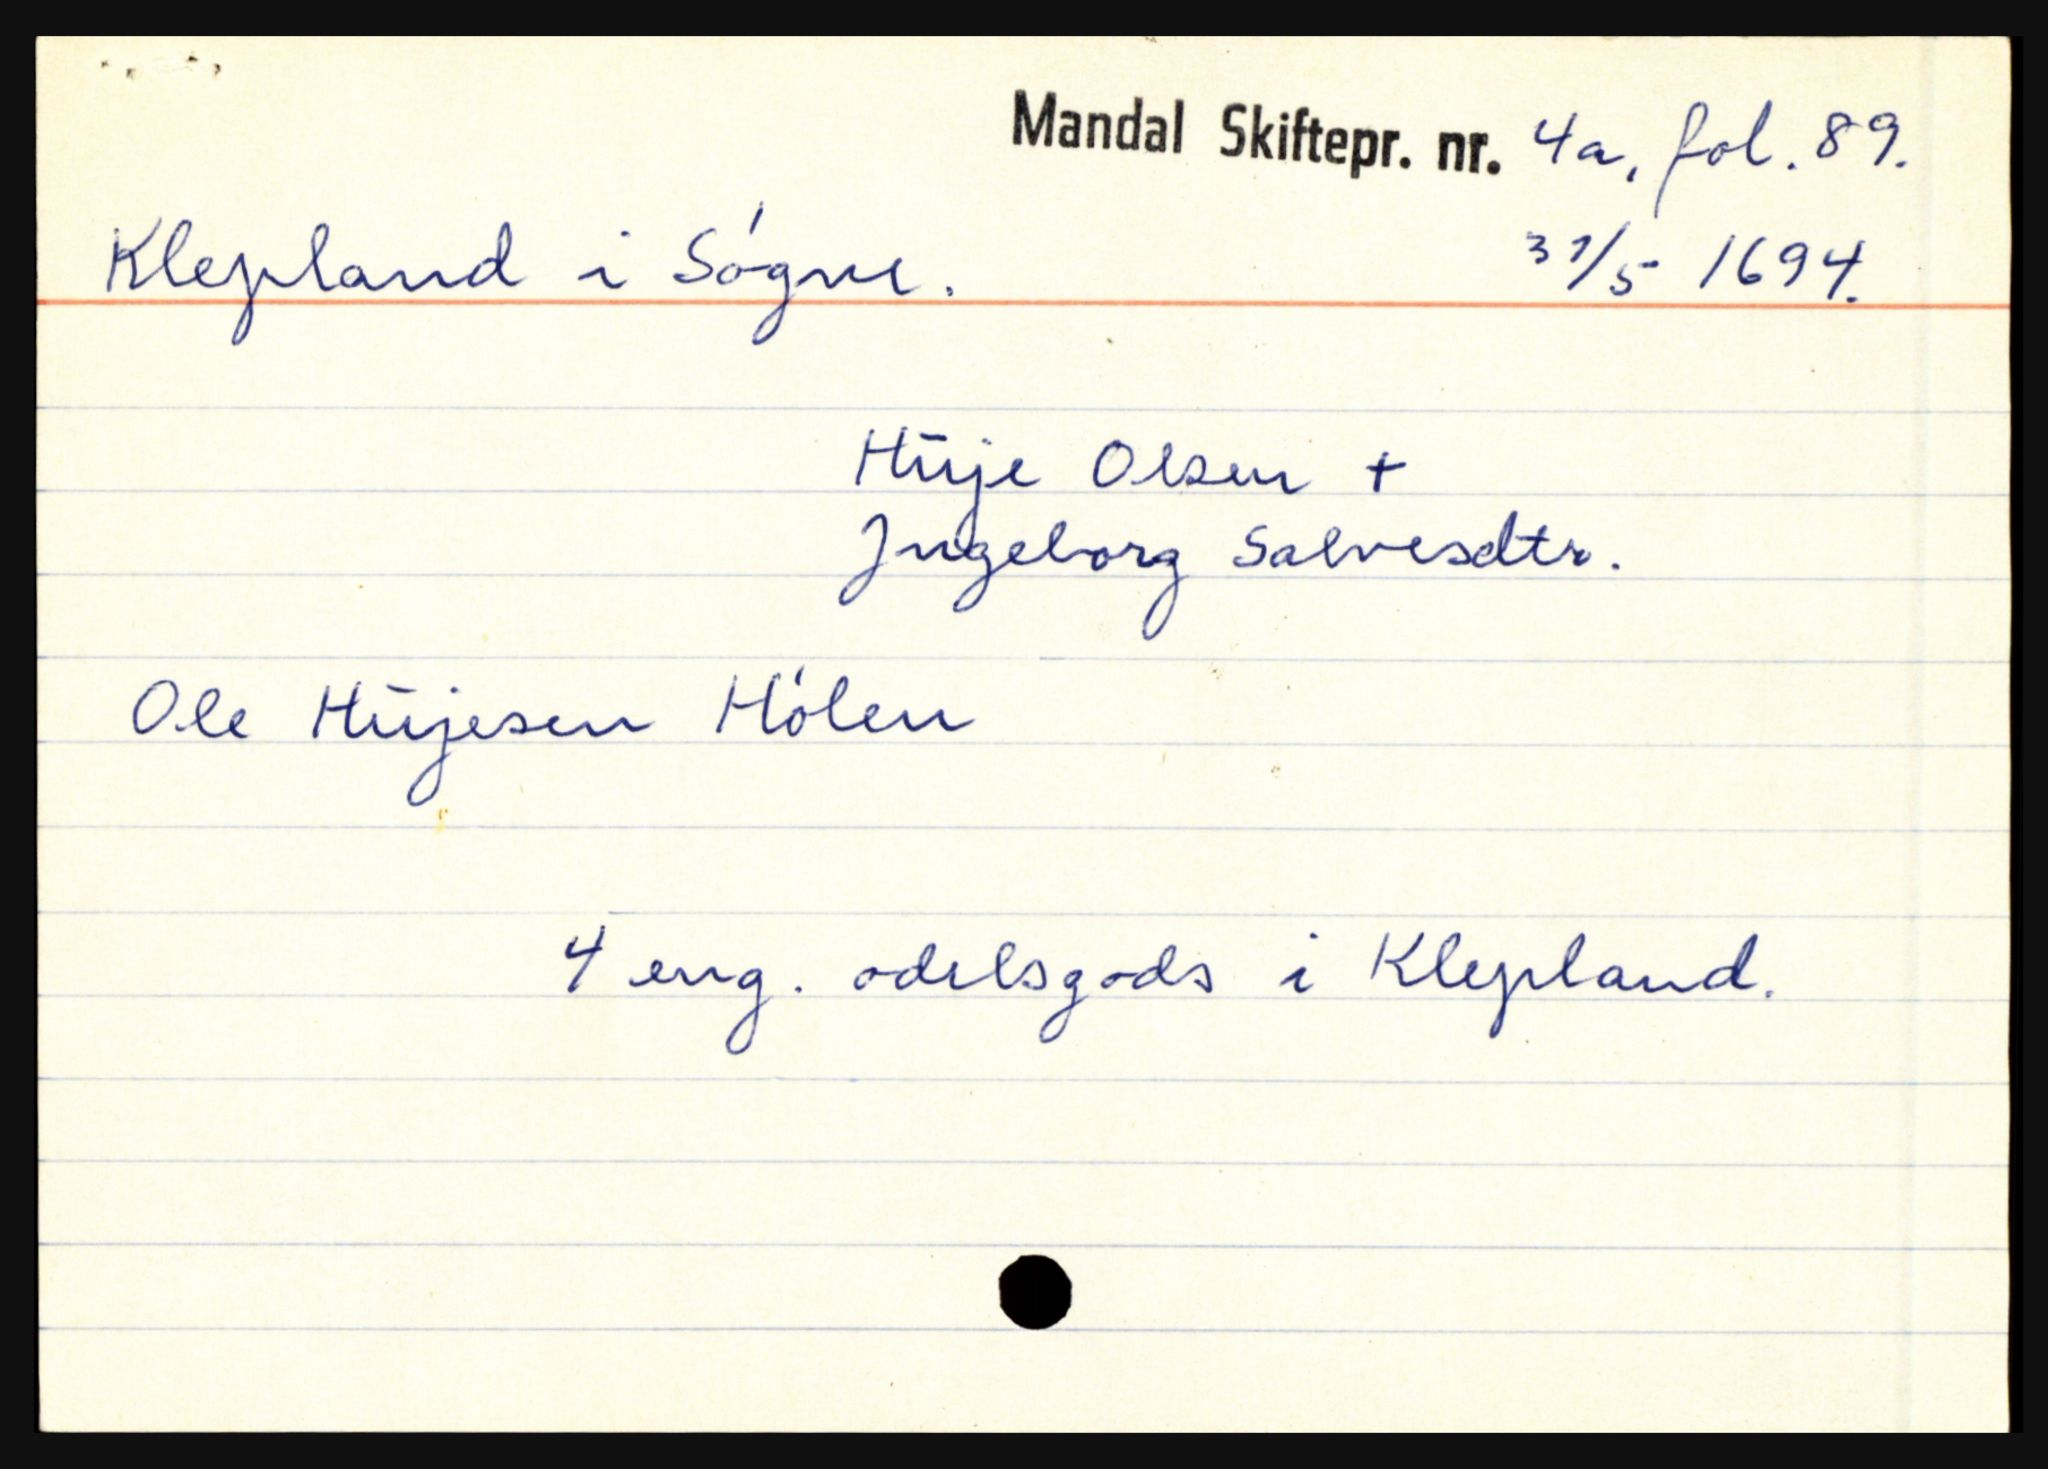 Mandal Skiftepr. nr. 4a, fol. 89.
Klepland i Søgne. 31/5 1694.
Hüje Olsen +
Ingeborg Salvesdtr.
Ole Hüjesen Hølen
4 eng. odelsgods i Klepland.